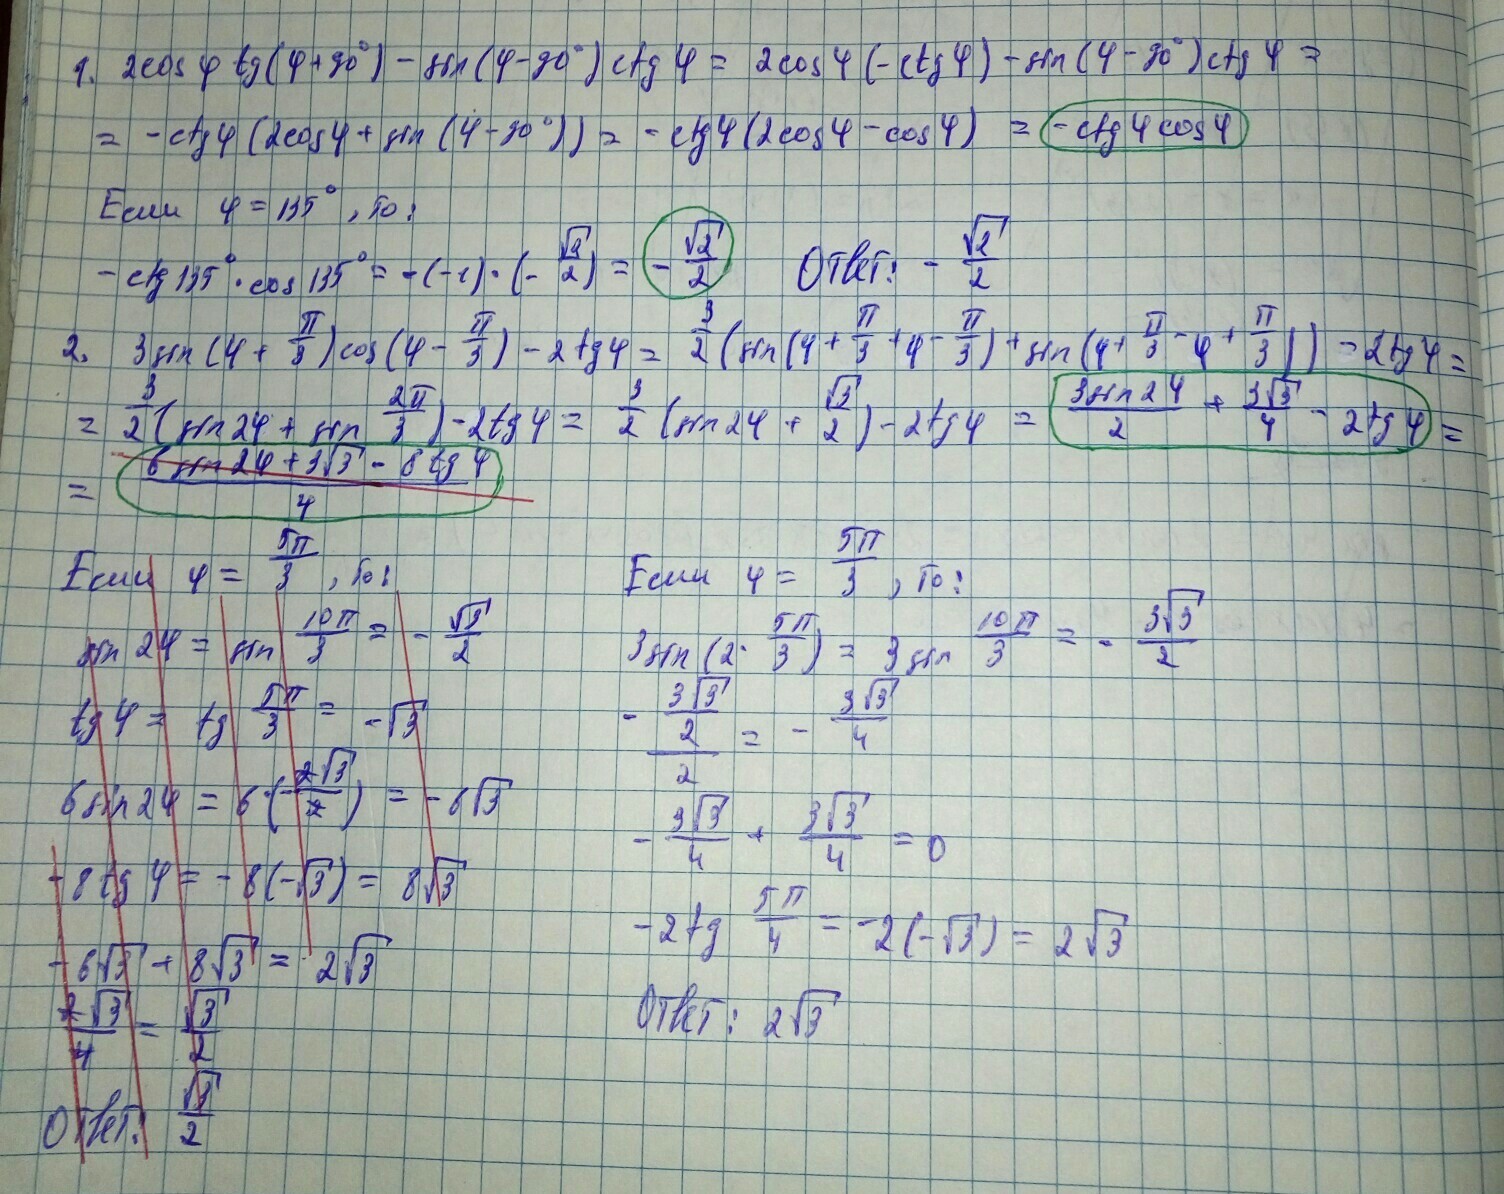 1. 2cos φ tg(φ+90°) - sin(φ-90°) ctg φ = 2cos φ (-ctg φ) - sin(φ-90°) ctg φ =
= -ctg φ (2cos φ + sin(φ-90°)) = -ctg φ (2cos φ - cos φ) = -ctg φ cos φ
Если φ = 135°, то:
-ctg 135° · cos 135° = -(-1) · (-√2/2) = -√2/2 Ответ: -√2/2
2. 3sin(φ + π/3) cos(φ - π/3) - 2tg φ = 3/2 (sin(φ + π/3 + φ - π/3) + sin(φ + π/3 - φ + π/3)) - 2tg φ =
= 3/2 (sin 2φ + sin 2π/3) - 2tg φ = 3/2 (sin 2φ + √3/2) - 2tg φ = 3sin 2φ/2 + 3√3/4 - 2tg φ =
= (6sin 2φ + 3√3 - 8tg φ)/4
Если φ = 5π/3, то:
sin 2φ = sin 10π/3 = -√3/2
tg φ = tg 5π/3 = -√3
6sin 2φ = 6·(-2√3/2) = -6√3
-8tg φ = -8(-√3) = 8√3
-6√3 + 8√3 = 2√3
2√3/4 = √3/2
Ответ: √3/2
Если φ = 5π/3, то:
3sin(2· 5π/3) = 3sin 10π/3 = -3√3/2
-(3√3/2)/2 = -3√3/4
-3√3/4 + 3√3/4 = 0
-2tg 5π/4 = -2(-√3) = 2√3
Ответ: 2√3